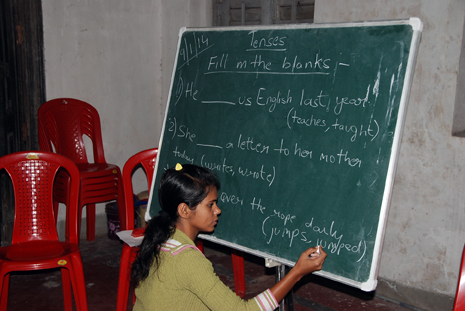 9/1/14
Tenses
Fill in the blanks :-
1) He ____ us English last year.
(teaches, taught)
2) She ____ a letter to her mother
today (writes, wrote)
over the rope daily
(jumps, jumped)